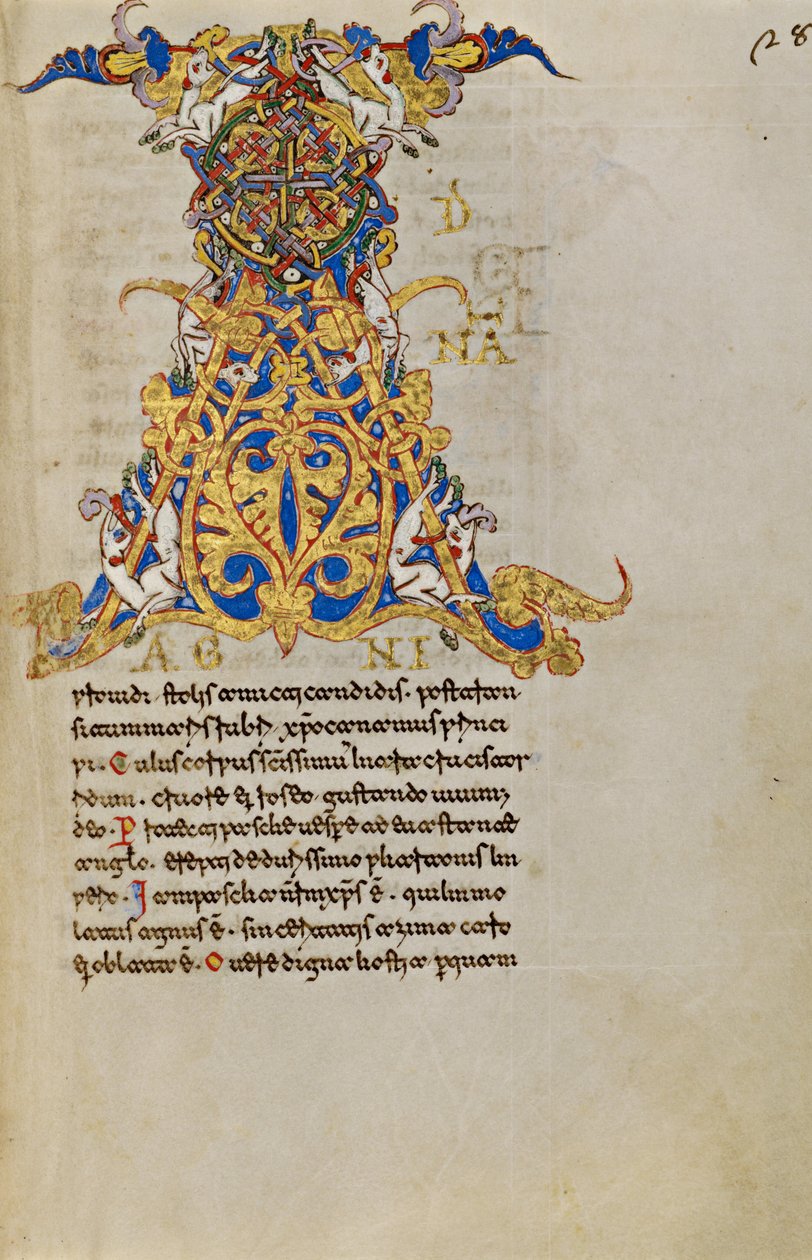 A
D
NA
AGNI
prouidi · stolis amicti candidis · post tran
situm maris rubri · xp̄o canamus princi
pi · Cuius corpus sc̄issimū In ara crucis tor
ridum · cruore ei᾽ roseo · gustando uiuim;
deo · Protecti pasche uesp̄e ad euastante
anglo · erepti de durissimo pharaonis im
perio · Iam pascha nr̄m xp̄s ē · qui immo
latus agnus ē · sinceritatis azima caro
ei᾽ oblata ē · O uere digna hostia · p̱ quam
28